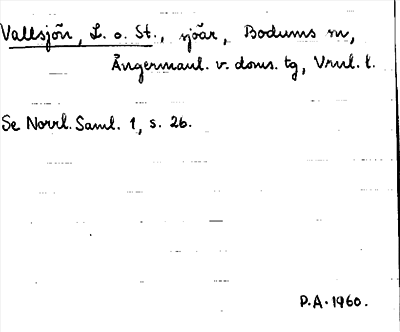 Vallsjön, L. o. St., sjöar, Bodums sn,
Ångermanl. v. doms. tg, Vrnl. l.
Se Norrl. Saml. 1, s. 26.
P.A. 1960.